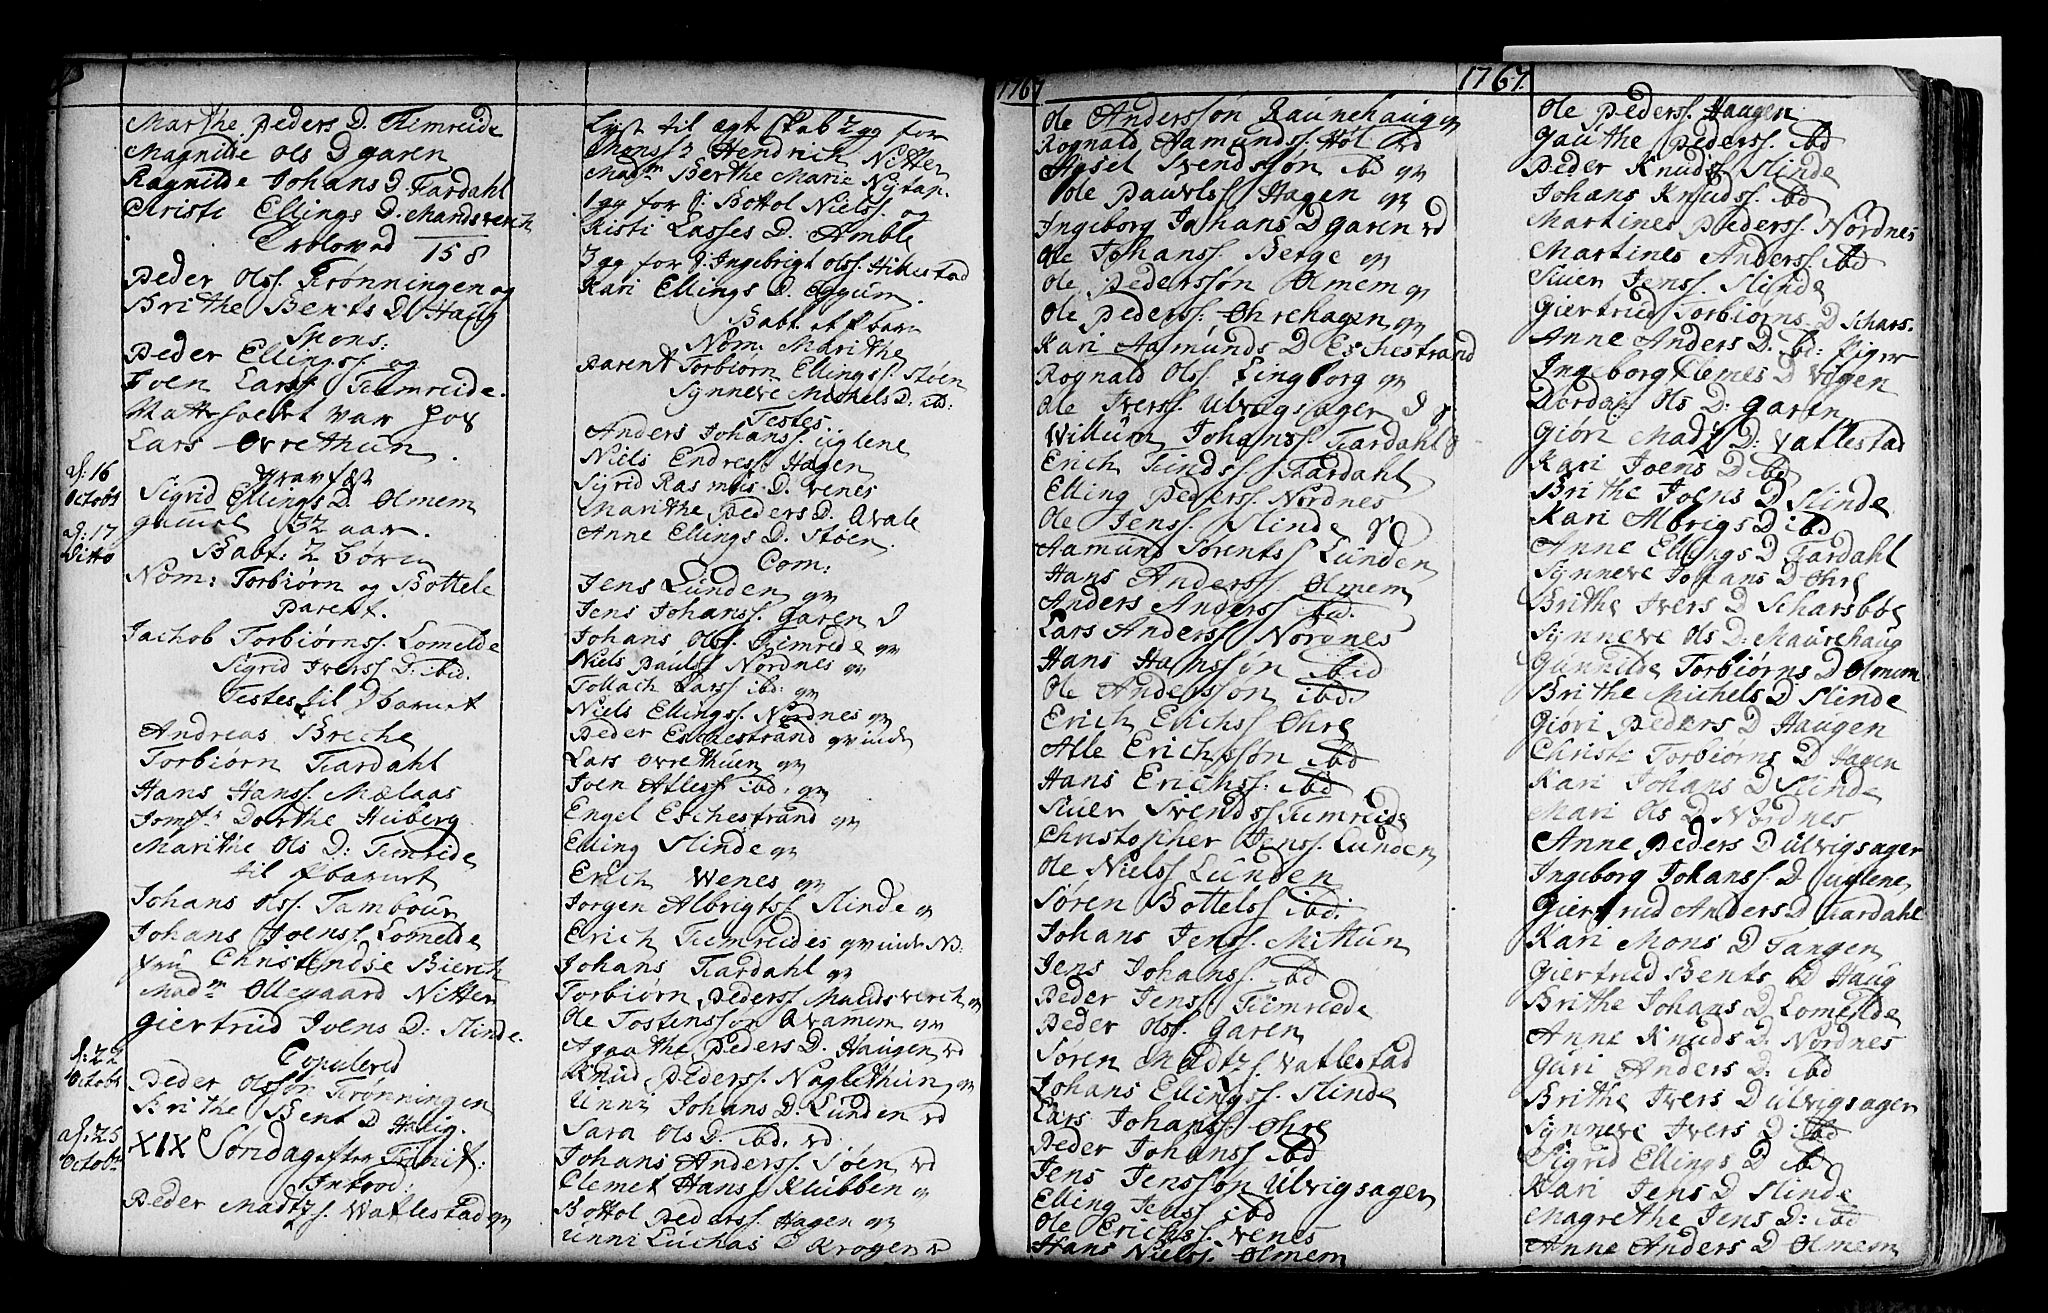 Marthe Peders D. Timreide
Magnilde Ols D Garen
Ragnilde Johans D. Fardahl
Christi Ellings D. Mandsverch
158
Peder Olss. Trønningen og
Brithe Bents D. Haug
Spons:
Peder Ellingss og
Joen Larss Timreide.
var hos
Lars Ovrethun.
d: 16
Octobr
Gravfæst
Sigrid Ellings D. Olmem
gamel 32 aar.
d: 17
Ditto
Babt: 2 Børn
Nom: Torbiørn og Bottele
Parent.
Jachob Torbiørnss. Lomelde
Sigrid Iverss D: ibid.
Testes til D barnet
Andreas Breche
Torbiørn Fardahl
Hans Hanss. Mælaas
Jomfr Dorthe Heiberg
Marithe Ols D: Timreide
til P barnet
Johans Olss. Tambour
Johans Joenss. Lomelde
Fru Christendse Bierch
Madm Ollegaard Nitter
Giertrud Joens D: Slinde.
d: 22
Octobr
Copulered
Peder Olssøn Trønningen
Brithe Bent D Haug.
d: 25
Octobr
XIX Søndag efter Trinit:
Introd:
Peder Madtz s. Vatlestad qv
Lyst til ægteskab 2 gg for
Monsr Hendrich Nitter
Madm Berthe Marie Nytap.
1 gg for S: Bottol Nielss. og
Kisti Lasses D. Amble
3 gg for S. Ingebrigt Olss. Hikestad
Kari Ellings D. Eggum.
Babt. et P barn
Nom: Marithe
Parent Torbiørn Ellingss. Støen
Synneve Michels D. ib:
Testes.
Anders Johanss. Uglene
Niels Endress Hagen
Sigrid Rasmus D. Venes
Marithe Peders D. Qvale
Anne Ellings D. Støen.
Com:
Jens Lunden qv
Jens Johanss. Garen
Johans Olss. Timreide qv
Niels Paulss Nordnes qv
Tollach Larss. ibd: qv
Niels Ellingss. Nordnes qv
Peder Eschestrand qvinde
Lars Ovrethun qv
Joen Atless ibd. qv
Engel Eschestrand qv
Elling Slinde qv
Erich Wenes qv
Jørgen Albrigtss Slinde qv
Erich Timreides qvinde NB:
Johans Fardahl qv
Torbiørn Pederss Mandsverch qv
Ole Tostenssøn Qvamem qv
Agaathe Peders D. Haugen vd
Knud Pederss. Naglethun qv
Unni Johans D. Lunden vd
Sara Ols D. ibd. vd.
Johans Anderss. Søen vd
Clemet Hanss Klubben qv
Bottol Pederss. Hagen qv
Unni Luchas D Krogen vd
1767
Ole Anderssøn Raunehaugen
Rognald Aamundss. Høl vd
Axsel Svendssøn ibd qv
Ole Pauvlss Hagen qv
Ingeborg Johans D Garen vd
Ole Johanss. Berge qv
Ole Pederssøn Olmem qv
Ole Pederss. Ohrehagen qv
Kari Aamunds D Eschestrand
Rognald Olss. Lingborg qv
Ole Iverss. Ulvigsager
Willum Johanss Fardahl
Erich Findss Fardahl
Elling Pederss. Nordnes
Ole Jenss. Slinde
Aamund Sørentss Lunden
Hans Anderss Olmem
Anders Anderss ibd.
Lars Anderss Nordnes
Hans Hanssøn ibid
Ole Anderssøn ibd.
Erich Erichss Ohre
Atle Erichssøn ibd
Hans Erichss. ibd
Siuer Svendss Timreide
Christopher Jenss. Lunden
Ole Nielss Lunden
Søren Bottelss ibd:
Johans Jenss. Mithun
Jens Johanss ibd
Peder Jenss Timreide
Peder Olss. Garen
Søren Madtz s. Vatlestad
Johans Ellingss. Slinde
Lars Johanss Ohre
Peder Johanss ibd
Jens Jenssøn Ulvigsager
Elling Jenss ibd
Ole Erichss. Venes
Hans Nielss. Olmem
1767.
Ole Pederss. Haugen
Gauthe Pederss. ibd
Peder Knudss Slinde
Johans Knudss. ibd
Martines Pederss. Nordnes
Martines Anderss. ibd
Siuer Jenss. Slinde
Giertrud Torbiørns D Schars.
Anne Anders D. ib: Piger
Ingeborg Clemes D Vigen
Dordai Ols D: Garen
Giøri Madtz D: Vatlestad
Kari Joens D ibd
Brithe Joens D Slinde
Kari Albrigs D ibd
Anne Ellings D Fardahl
Synneve Johans D Ohre
Brithe Ivers D Scharsboe
Synneve Ols D: Maurehaug
Gunnilde Torbiørns D Olmem
Brithe Michels D Slinde
Giøri Peders D Haugen
Christi Torbiørns D Hagen
Kari Johans D Slinde
Mari Ols D Nordnes
Anne Peders D Ulvigsager
Ingeborg Johanss. D Uglene
Giertrud Anders D Fardahl
Kari Mons D Tangen
Giertrud Bents D Haug
Brithe Johans D Lomelde
Anne Knuds D. Nordnes
Guri Anders D: ibd
Brithe Ivers D Ulvigsager
Synneve Ivers D: ibd
Sigrid Ellings D ibd
Kari Jens D Slinde
Magrethe Jens D: ibd
Anne Anders D Olmem